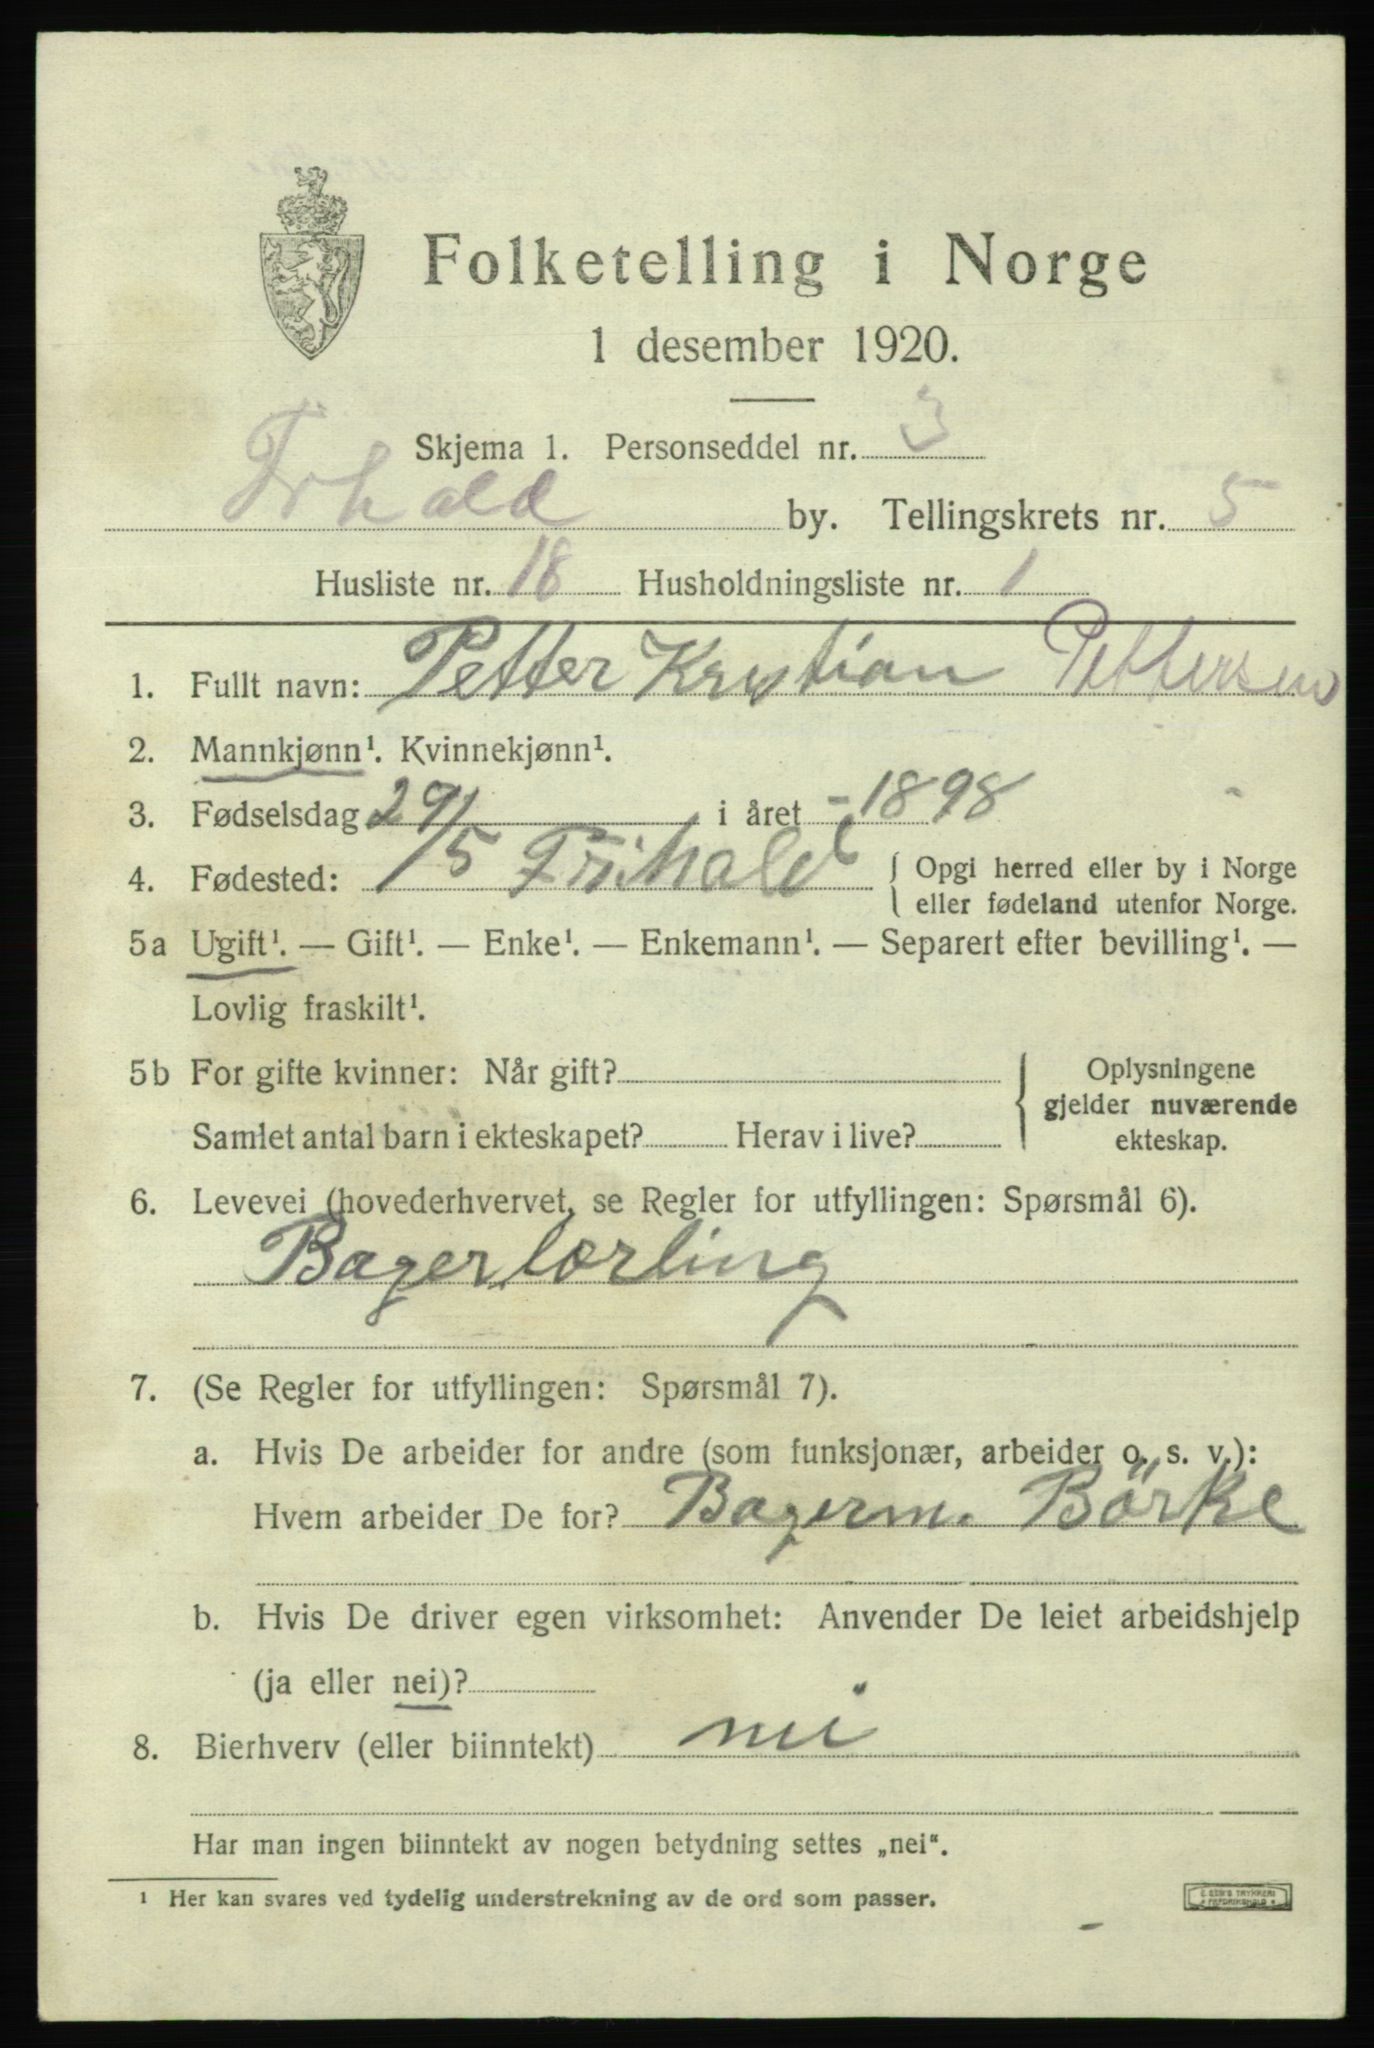 Folketelling i Norge
1 desember 1920.
Skjema 1. Personseddel nr. 3
Frhald by. Tellingskrets nr. 5
Husliste nr. 18 Husholdningsliste nr. 1
1. Fullt navn: Petter Kristian Pettersen
2. Mannkjønn¹. Kvinnekjønn¹.
3. Fødselsdag 29/5 i året - 1898
4. Fødested: Frihald { Opgi herred eller by i Norge
eller fødeland utenfor Norge.
5a Ugift¹. — Gift¹. — Enke¹. — Enkemann¹. — Separert efter bevilling¹. —
Lovlig fraskilt¹.
5b For gifte kvinner: Når gift? { Oplysningene
gjelder nuværende
Samlet antal barn i ekteskapet? Herav i live? ekteskap.
6. Levevei (hovederhvervet, se Regler for utfyllingen: Spørsmål 6).
Bagerlærling
7. (Se Regler for utfyllingen: Spørsmål 7).
a. Hvis De arbeider for andre (som funksjonær, arbeider o. s. v.):
Hvem arbeider De for? Bagerm. Börke
b. Hvis De driver egen virksomhet: Anvender De leiet arbeidshjelp
(ja eller nei)?
8. Bierhverv (eller biinntekt) nei
Har man ingen biinntekt av nogen betydning settes „nei“.
¹ Her kan svares ved tydelig understrekning av de ord som passer.
E. SEM'S TRYKKERI
FREDRIKSHALD